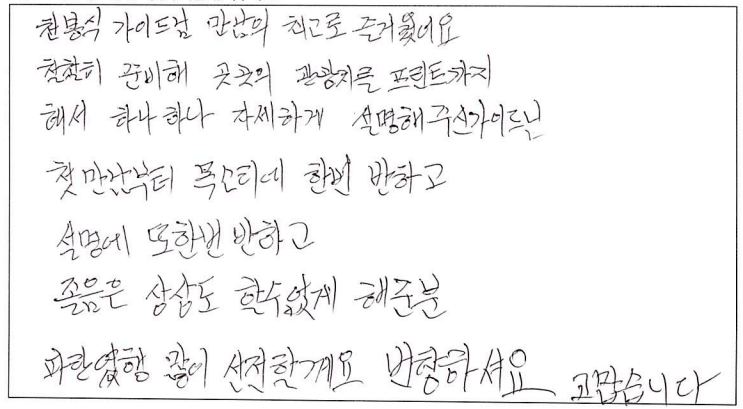 천봉식 가이드님 만남의 최고로 즐거웠어요
철찰히 준비해 곳곳의 관광지를 프린트까지
해서 하나 하나 자세하게 설명해주신가이드님
첫 만남부터 목소리에 한번 반하고
설명에 또한번 반하고
졸음은 상상도 할수없게 해준분
파란여행 많이 선전할게요 번형하셔요 고맙습니다